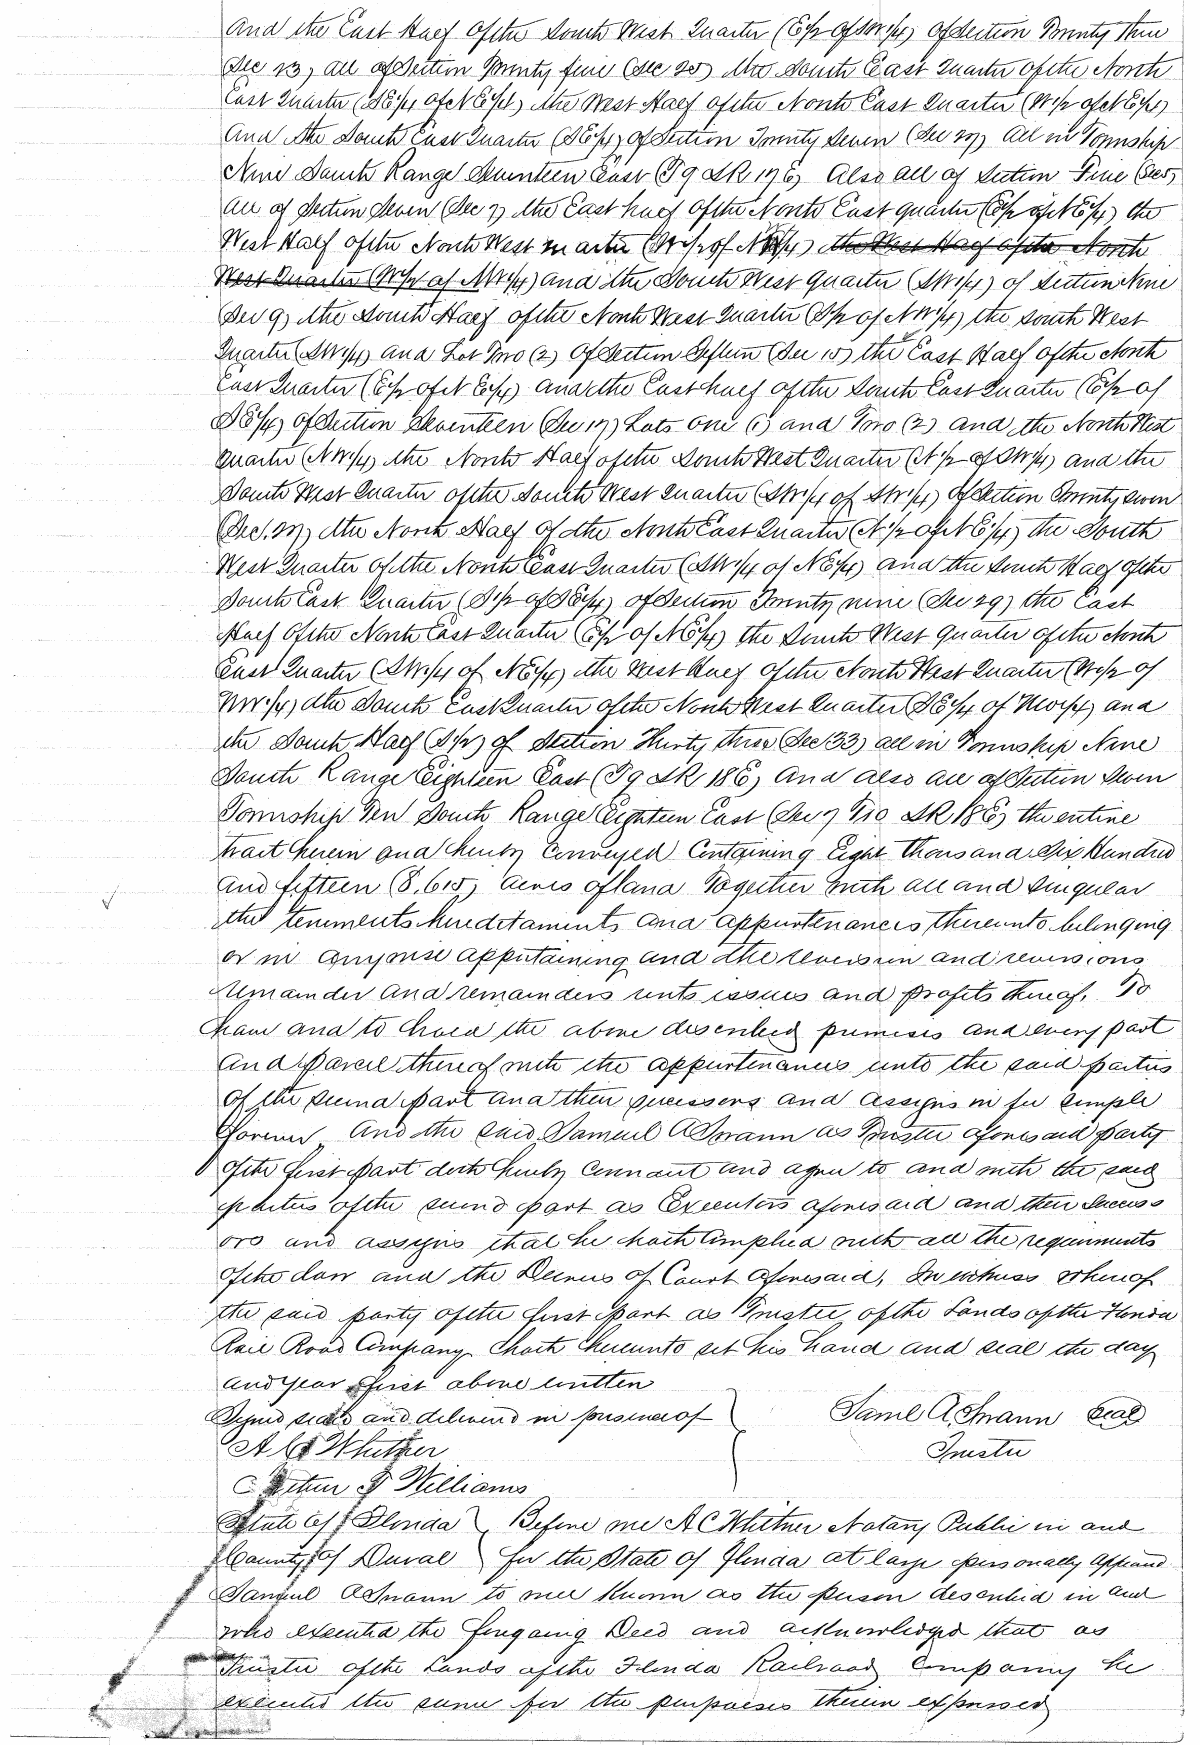 and the East Half of the South West Quarter (E½ of SW¼) of Section Twenty three
(Sec 23) all of Section Twenty five (Sec 25) the South East Quarter of the North
East Quarter (SE¼ of NE¼) the West Half of the North East Quarter (W½ of NE¼)
and the South East Quarter (SE¼) of Section Twenty Seven (Sec 27) all in Township
Nine South Range Seventeen East (T9 SR 17E) Also all of Section Five (Sec 5)
all of Section Seven (Sec 7) the East half of the North East quarter (E½ of NE¼) the
West Half of the North West quarter (W½ of NW¼) the West Half of the North
West Quarter (W½ of NW¼) and the South West Quarter (SW¼) of Section Nine
(Sec 9) the South Half of the North West Quarter (S½ of NW¼) the South West
Quarter (SW¼) and Lot Two (2) of Section Fifteen (Sec 15) the East Half of the North
East Quarter (E½ of NE¼) and the East half of the South East Quarter (E½ of
SE¼) of Section Seventeen (Sec 17) Lots one (1) and Two (2) and the North West
Quarter (NW¼) the North Half of the South West Quarter (N½ of SW¼) and the
South West Quarter of the South West Quarter (SW¼ of SW¼) of Section Twenty seven
(Sec. 27) the North Half of the North East Quarter (N½ of NE¼) the South
West Quarter of the North East Quarter (SW¼ of NE¼) and the South Half of the
South East Quarter (S½ of SE¼) of Section Twenty nine (Sec 29) the East
Half of the North East Quarter (E½ of NE¼) the South West quarter of the North
East Quarter (SW¼ of NE¼) the West Half of the North West Quarter (W½ of
NW¼) the South East Quarter of the North West Quarter (SE¼ of NW¼) and
the South Half (S½) of Section Thirty three (Sec 33) all in Township Nine
South Range Eighteen East (T9 SR 18E) And also all of Section Seven
Township Ten South Range Eighteen East (Sec 7 T10 SR 18E) the entire
tract herein and hereby conveyed Containing Eight thousand Six Hundred
and fifteen (8,615) acres of land Together with all and singular
the tenements hereditaments and appurtenances thereunto belonging
or in anywise appertaining and the reversion and reversions
remainder and remainders rents issues and profits thereof. To
have and to hold the above described premises and every part
and parcel thereof with the appurtenances unto the said parties
of the second part and their successors and assigns in fee simple
forever And the said Samuel A Swann as Trustee aforesaid party
of the first part doth hereby covenant and agree to and with the said
parties of the second part as Executors aforesaid and their Success
ors and assigns that he hath Complied with all the requirements
of the law and the Decrees of Court aforesaid, In witness whereof
the said party of the first part as Trustee of the Lands of the Florida
Rail Road Company hath hereunto set his hand and seal the day
and year first above written
Signed sealed and delivered in presence of } Saml A. Swann Seal
A C Whitner Trustee
Arthur T Williams
State of Florida } Before me A C Whitner Notary Public in and
County of Duval } for the State of Florida at large personally appeared
Samuel A Swann to me known as the person described in and
who executed the foregoing Deed and acknowledged that as
Trustee of the Lands of the Florida Railroad Company he
executed the same for the purposes therein expressed